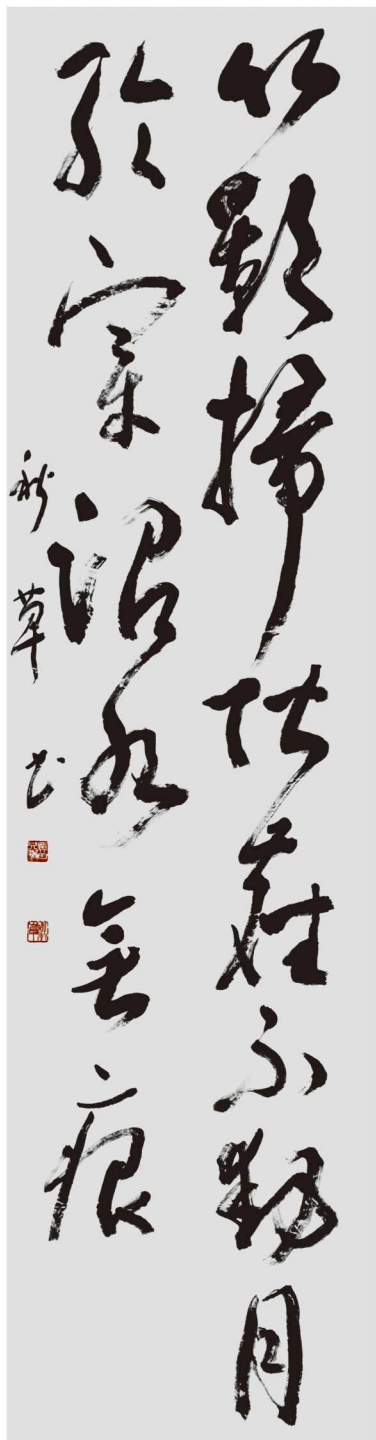 竹影掃階塵不動月
輪穿沼水無痕
秋草书